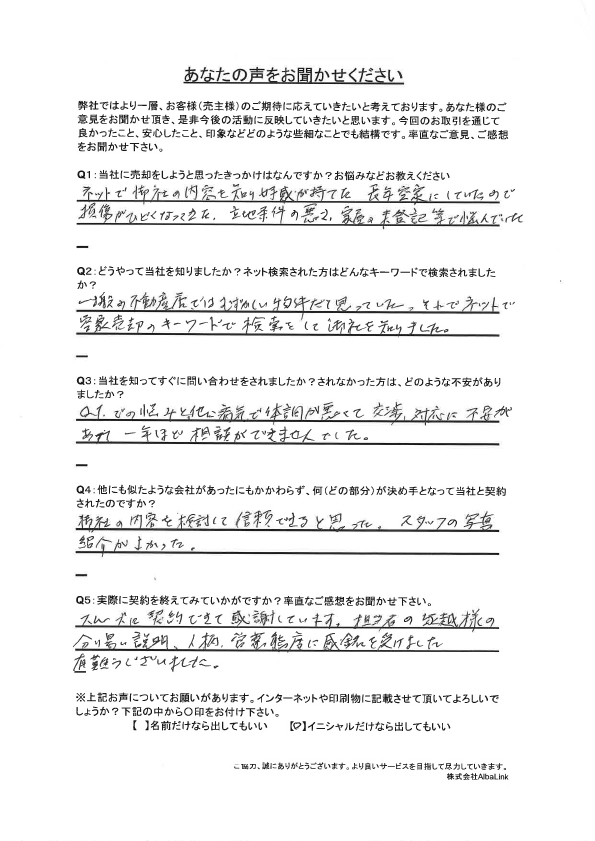 あなたの声をお聞かせください
弊社ではより一層、お客様(売主様)のご期待に応えていきたいと考えております。あなた様のご
意見をお聞かせ頂き、是非今後の活動に反映していきたいと思います。今回のお取引を通じて
良かったこと、安心したこと、印象などどのような些細なことでも結構です。率直なご意見、ご感想
をお聞かせ下さい。
Q1:当社に売却をしようと思ったきっかけはなんですか?お悩みなどお教えください
ネットで御社の内容を知り好感が持てた 長年空家にしていたので
損傷がひどくなってきた、立地条件の悪さ、家屋の未登記等で悩んでいた
Q2:どうやって当社を知りましたか?ネット検索された方はどんなキーワードで検索されました
か?
一般の不動産店ではむずかしい物件だと思っていた、それでネットで
空家売却のキーワードで検索をして御社を知りました。
Q3:当社を知ってすぐに問い合わせをされましたか?されなかった方は、どのような不安があり
ましたか?
Q1.での悩みと他に病気で体調が悪くて交渉、対応に不安が
あって一年ほど相談ができませんでした。
Q4:他にも似たような会社があったにもかかわらず、何(どの部分)が決め手となって当社と契約
されたのですか?
御社の内容を検討して信頼できると思った。スタッフの写真
紹介がよかった。
Q5:実際に契約を終えてみていかがですか?率直なご感想をお聞かせ下さい。
スムーズに契約できて感謝しています。担当者の 様の
分り易い説明、人柄、営業態度に感銘を受けました
有難うございました。
※上記お声についてお願いがあります。インターネットや印刷物に記載させて頂いてよろしいで
しょうか?下記の中から〇印をお付け下さい。
【 】名前だけなら出してもいい 【〇】イニシャルだけなら出してもいい
ご協力、誠にありがとうございます。より良いサービスを目指して尽力していきます。
株式会社AlbaLink